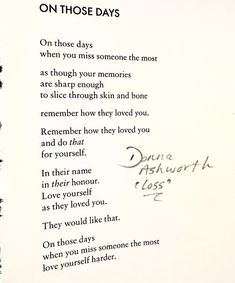 ON THOSE DAYS
On those days
when you miss someone the most
as though your memories
are sharp enough
to slice through skin and bone
remember how they loved you.
Remember how they loved you
and do that
for yourself.
In their name
in their honour.
Love yourself
as they loved you.
They would like that.
On those days
when you miss someone the most
love yourself harder.
Donna
Ashworth
"Loss"